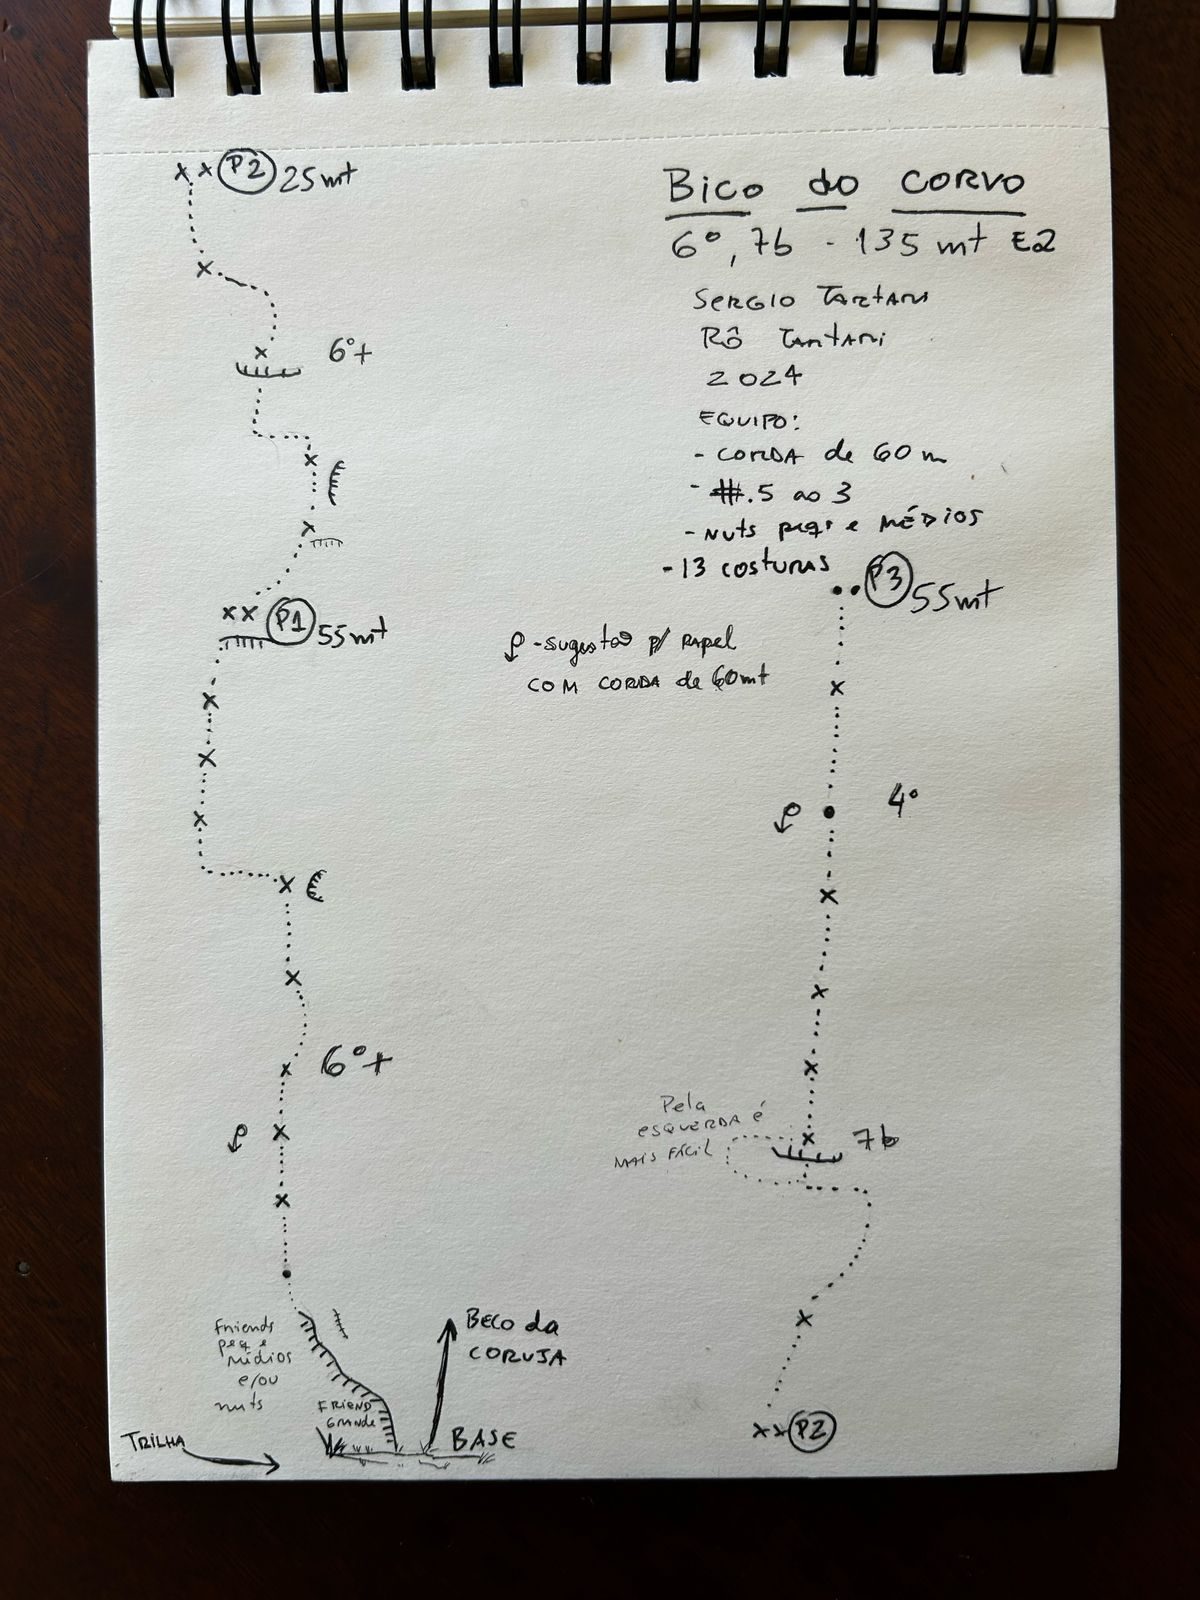 P2 25mt
6°+
P1 55mt
6°+
Friends
peq e
médios
e/ou
nuts
FRIEND
GRANDE
TRILHA
BASE
BECO da
CORUJA
Bico do CORVO
6°, 7b - 135 mt E2
SERGIO TARTARI
RÔ TARTARI
2024
EQUIPO:
- CORDA de 60 m
- #.5 ao 3
- NUTS peqs e MÉDIOS
- 13 COSTURAS
- sugestão p/ RAPEL
COM CORDA de 60mt
P3 55mt
4°
Pela
ESQUERDA é
MAIS FÁCIL
7b
P2